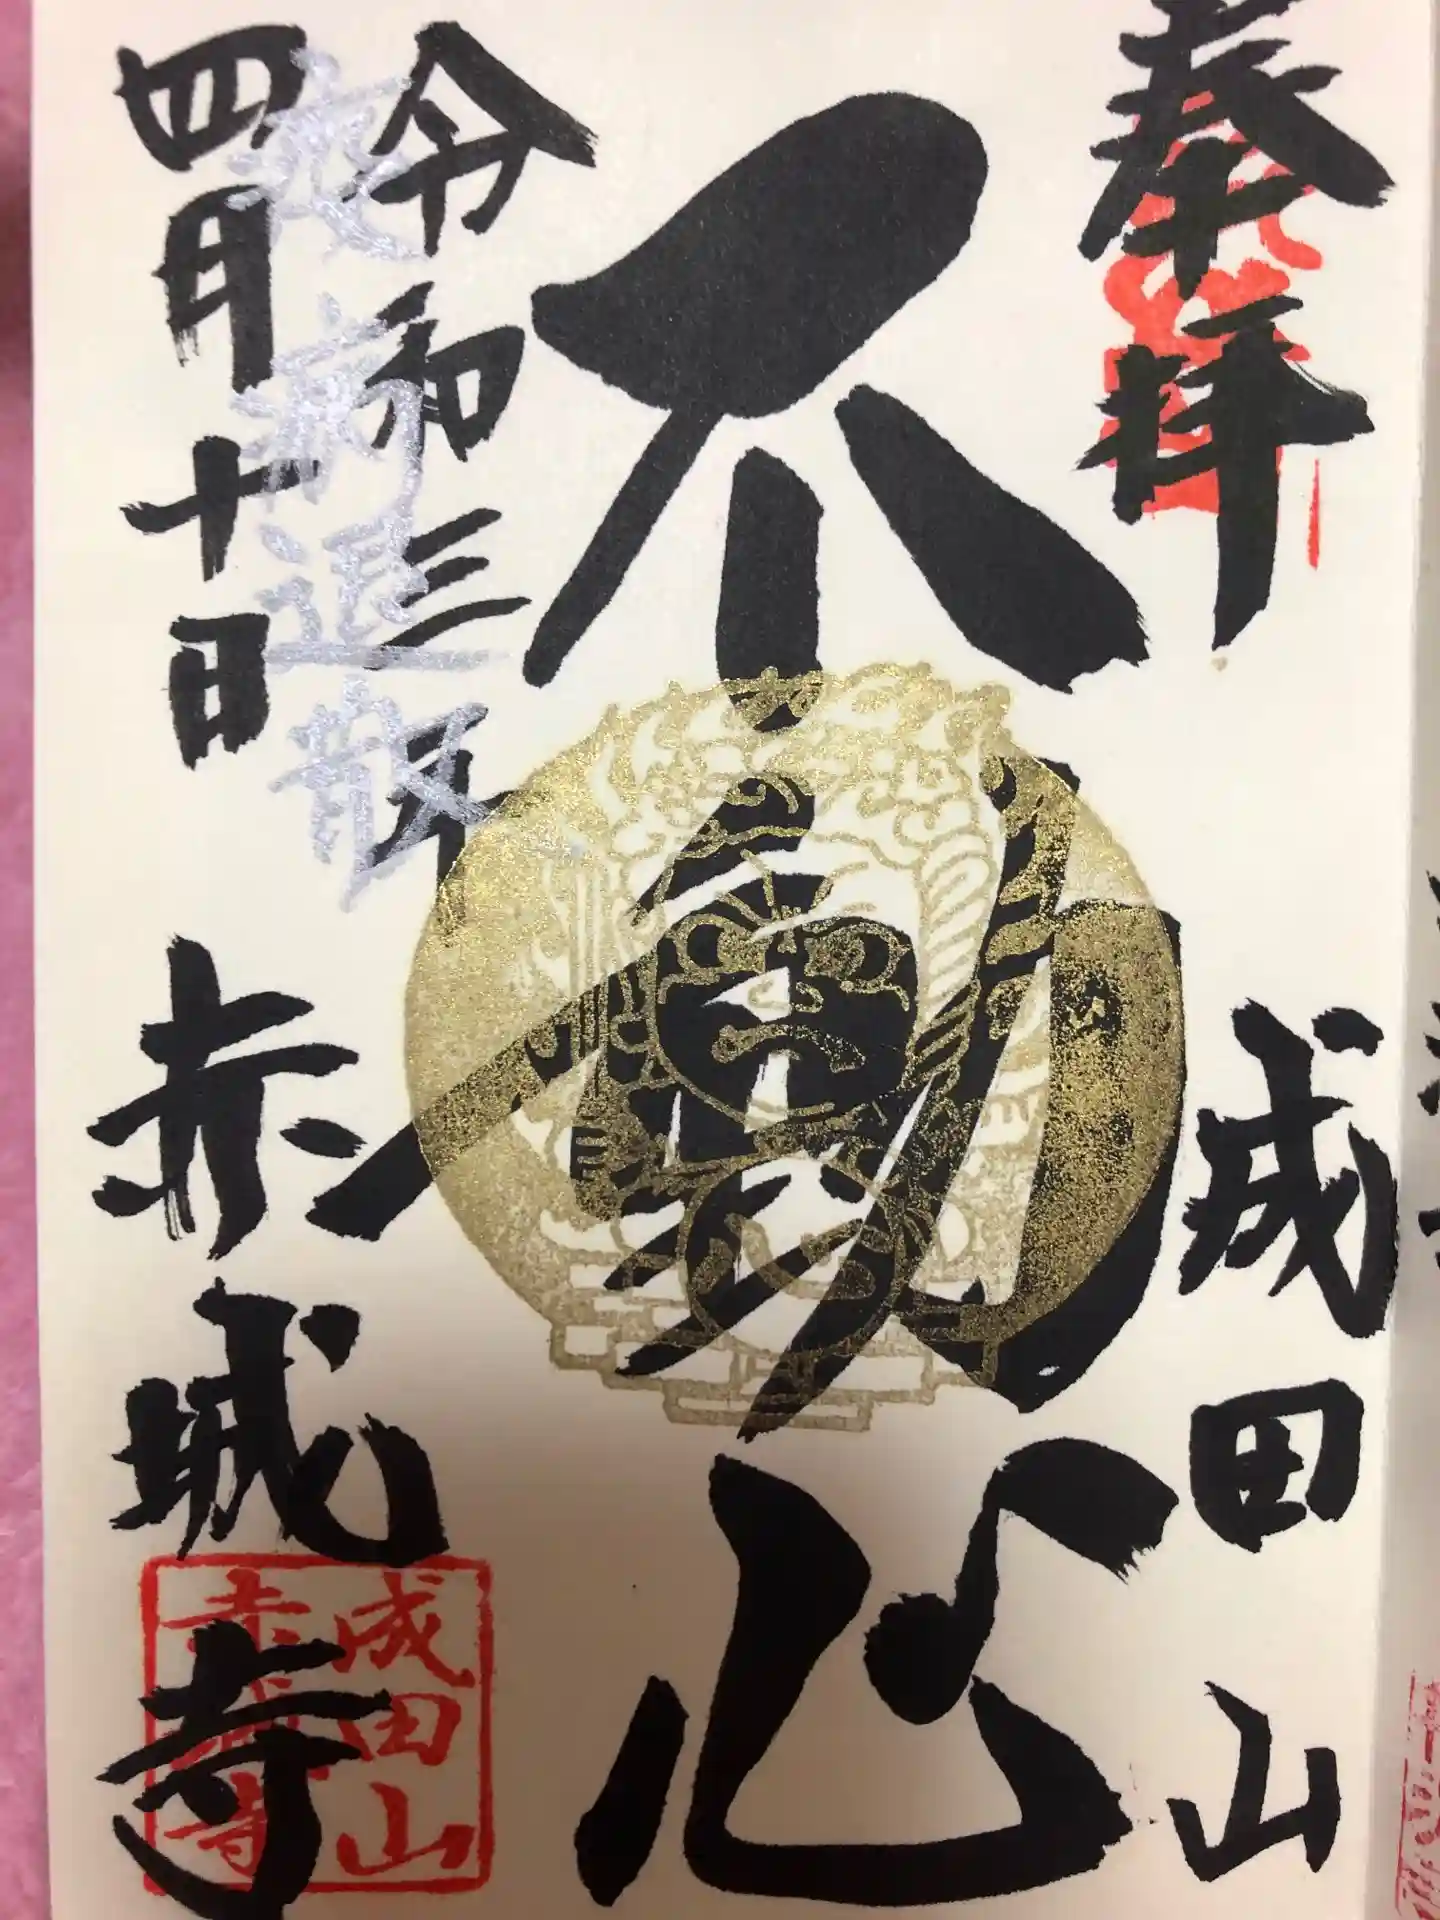 奉拝
成田山
不動心
令和三年
疫病退散
四月十日
赤城寺
成田山
赤城寺